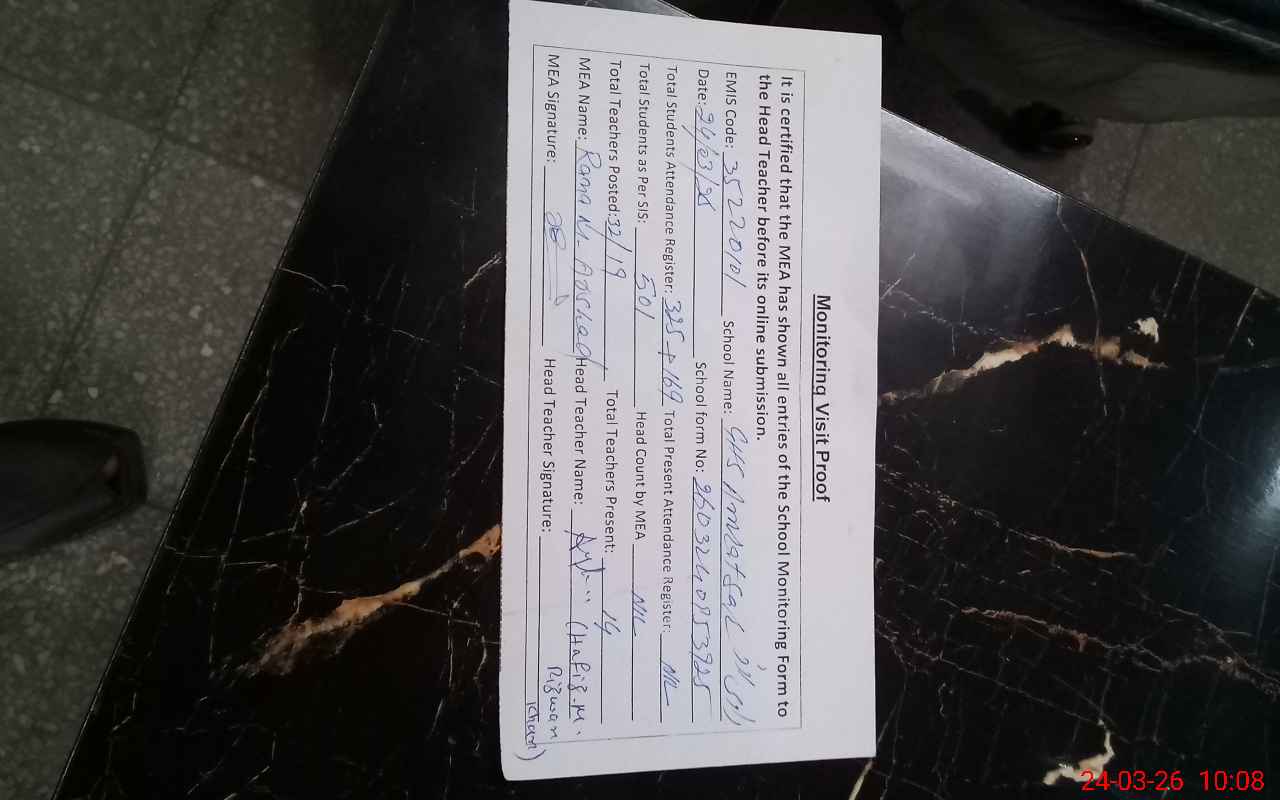 Monitoring Visit Proof
It is certified that the MEA has shown all entries of the School Monitoring Form to
the Head Teacher before its online submission.
EMIS Code: 35220101 School Name: GHS Amratsar
Date: 24/03/ School form No:
Total Students Attendance Register: 325+169 Total Present Attendance Register: NIL
Total Students as Per SIS: 501 Head Count by MEA NIL
Total Teachers Posted: 32/19 Total Teachers Present: 14
MEA Name: Rana M. Arshad Head Teacher Name: (Hafiz. M.
Rizwan
Khan)
MEA Signature: Head Teacher Signature:
24-03-26 10:08